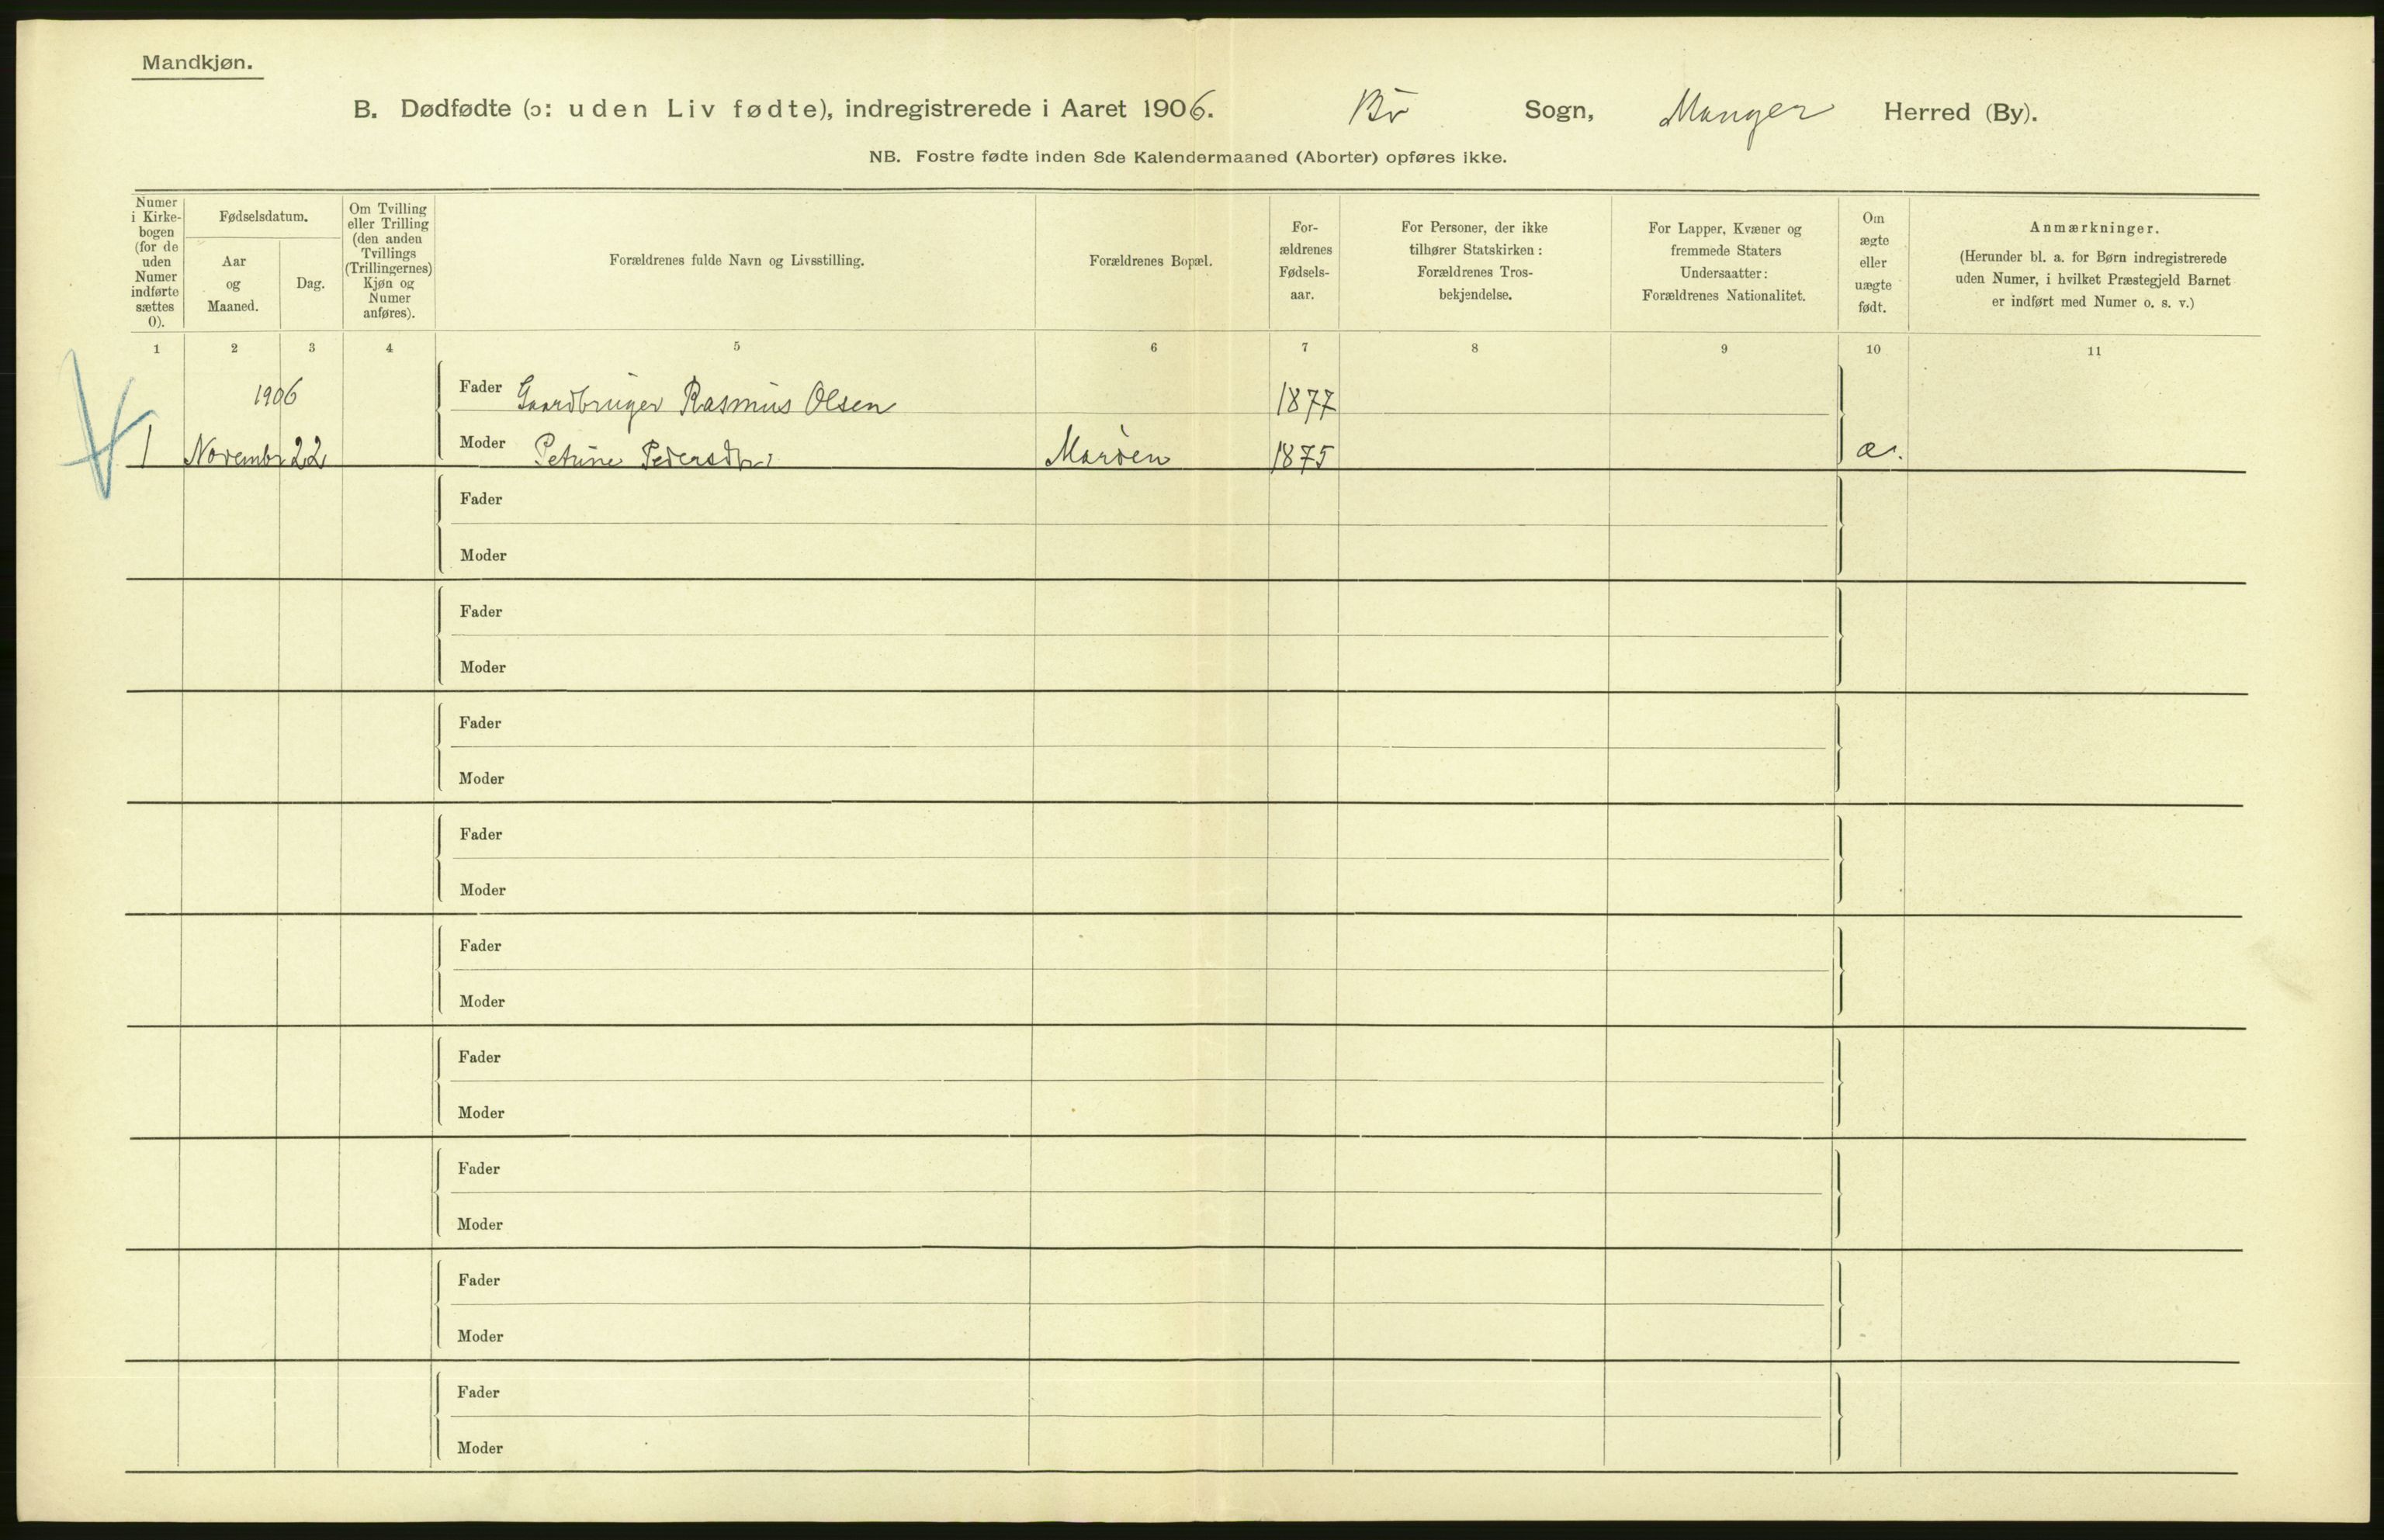 Mandkjøn.
B. Dødfødte (ɔ: uden Liv fødte), indregistrerede i Aaret 1906. Bø Sogn, Manger Herred (By).
NB. Fostre fødte inden 8de Kalendermaaned (Aborter) opføres ikke.
Numer i Kirke-bogen (for de uden Numer indførte sættes 0).
Fødselsdatum.
Aar og Maaned.
Dag.
Om Tvilling eller Trilling (den anden Tvillings (Trillingernes) Kjøn og Numer anføres).
Forældrenes fulde Navn og Livsstilling.
Forældrenes Bopæl.
For-ældrenes Fødsels-aar.
For Personer, der ikke tilhører Statskirken: Forældrenes Tros-bekjendelse.
For Lapper, Kvæner og fremmede Staters Undersaatter: Forældrenes Nationalitet.
Om ægte eller uægte født.
Anmærkninger.
(Herunder bl. a. for Børn indregistrerede uden Numer, i hvilket Præstegjeld Barnet er indført med Numer o. s. v.)
1 2 3 4 5 6 7 8 9 10 11
1906 Fader Gaardbruger Rasmus Olsen 1877
1 Novembr 22 Moder Petrine Pedersdtr Marøen 1875 æ.
Fader
Moder
Fader
Moder
Fader
Moder
Fader
Moder
Fader
Moder
Fader
Moder
Fader
Moder
Fader
Moder
Fader
Moder